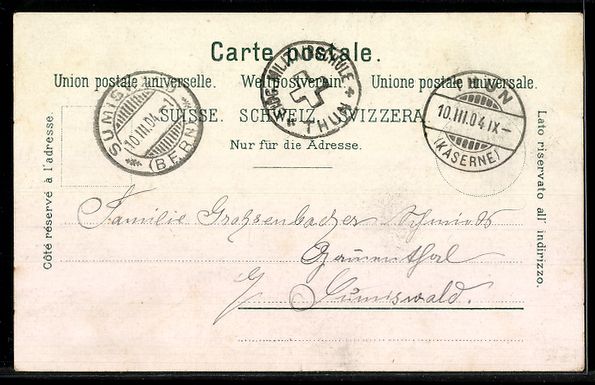 Carte postale.
Union postale universelle. Weltpostverein. Unione postale universale.
SUISSE. SCHWEIZ. SVIZZERA.
Nur für die Adresse.
Côté réservé à l'adresse.
Lato riservato all' indirizzo.
SUMISW
10.III.04
(BERN)
EIDG. MILITÄRSCHULE
* THUN *
THUN
10.III.04.IX-
(KASERNE)
Familie Schmidt
Sumiswald.